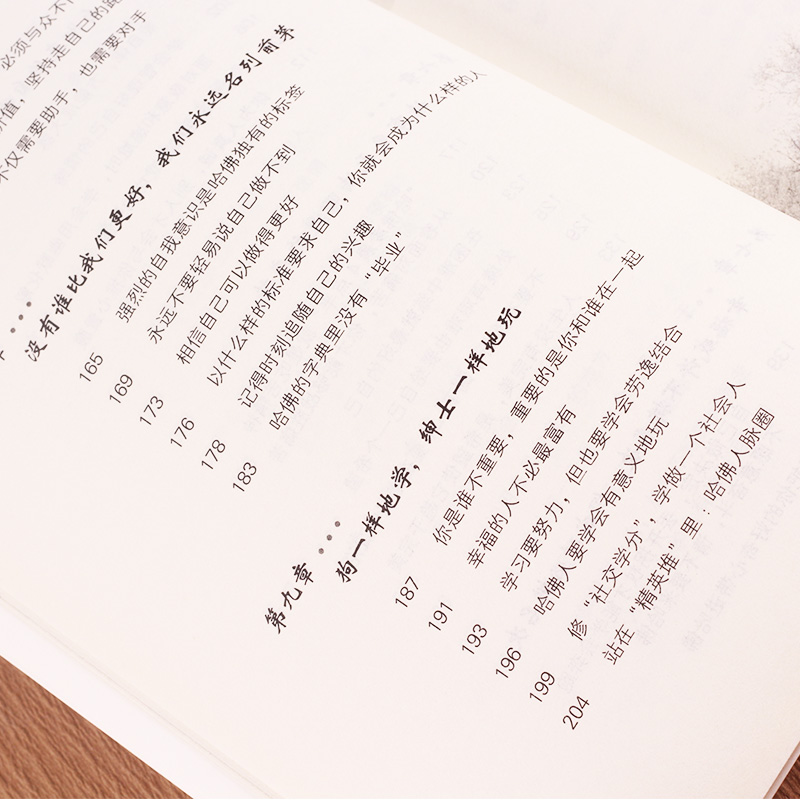 必须与众不
值，坚持走自己的路
不仅需要助手，也需要对手
没有谁比我们更好，我们永远名列前茅
165 强烈的自我意识是哈佛独有的标签
169 永远不要轻易说自己做不到
173 相信自己可以做得更好
176 以什么样的标准要求自己，你就会成为什么样的人
178 记得时刻追随自己的兴趣
183 哈佛的字典里没有“毕业”
第九章
狗一样地学，绅士一样地玩
187 你是谁不重要，重要的是你和谁在一起
191 幸福的人不必最富有
193 学习要努力，但也要学会劳逸结合
196 哈佛人要学会有意义地玩
199 修“社交学分”，学做一个社会人
204 站在“精英堆”里：哈佛人脉圈